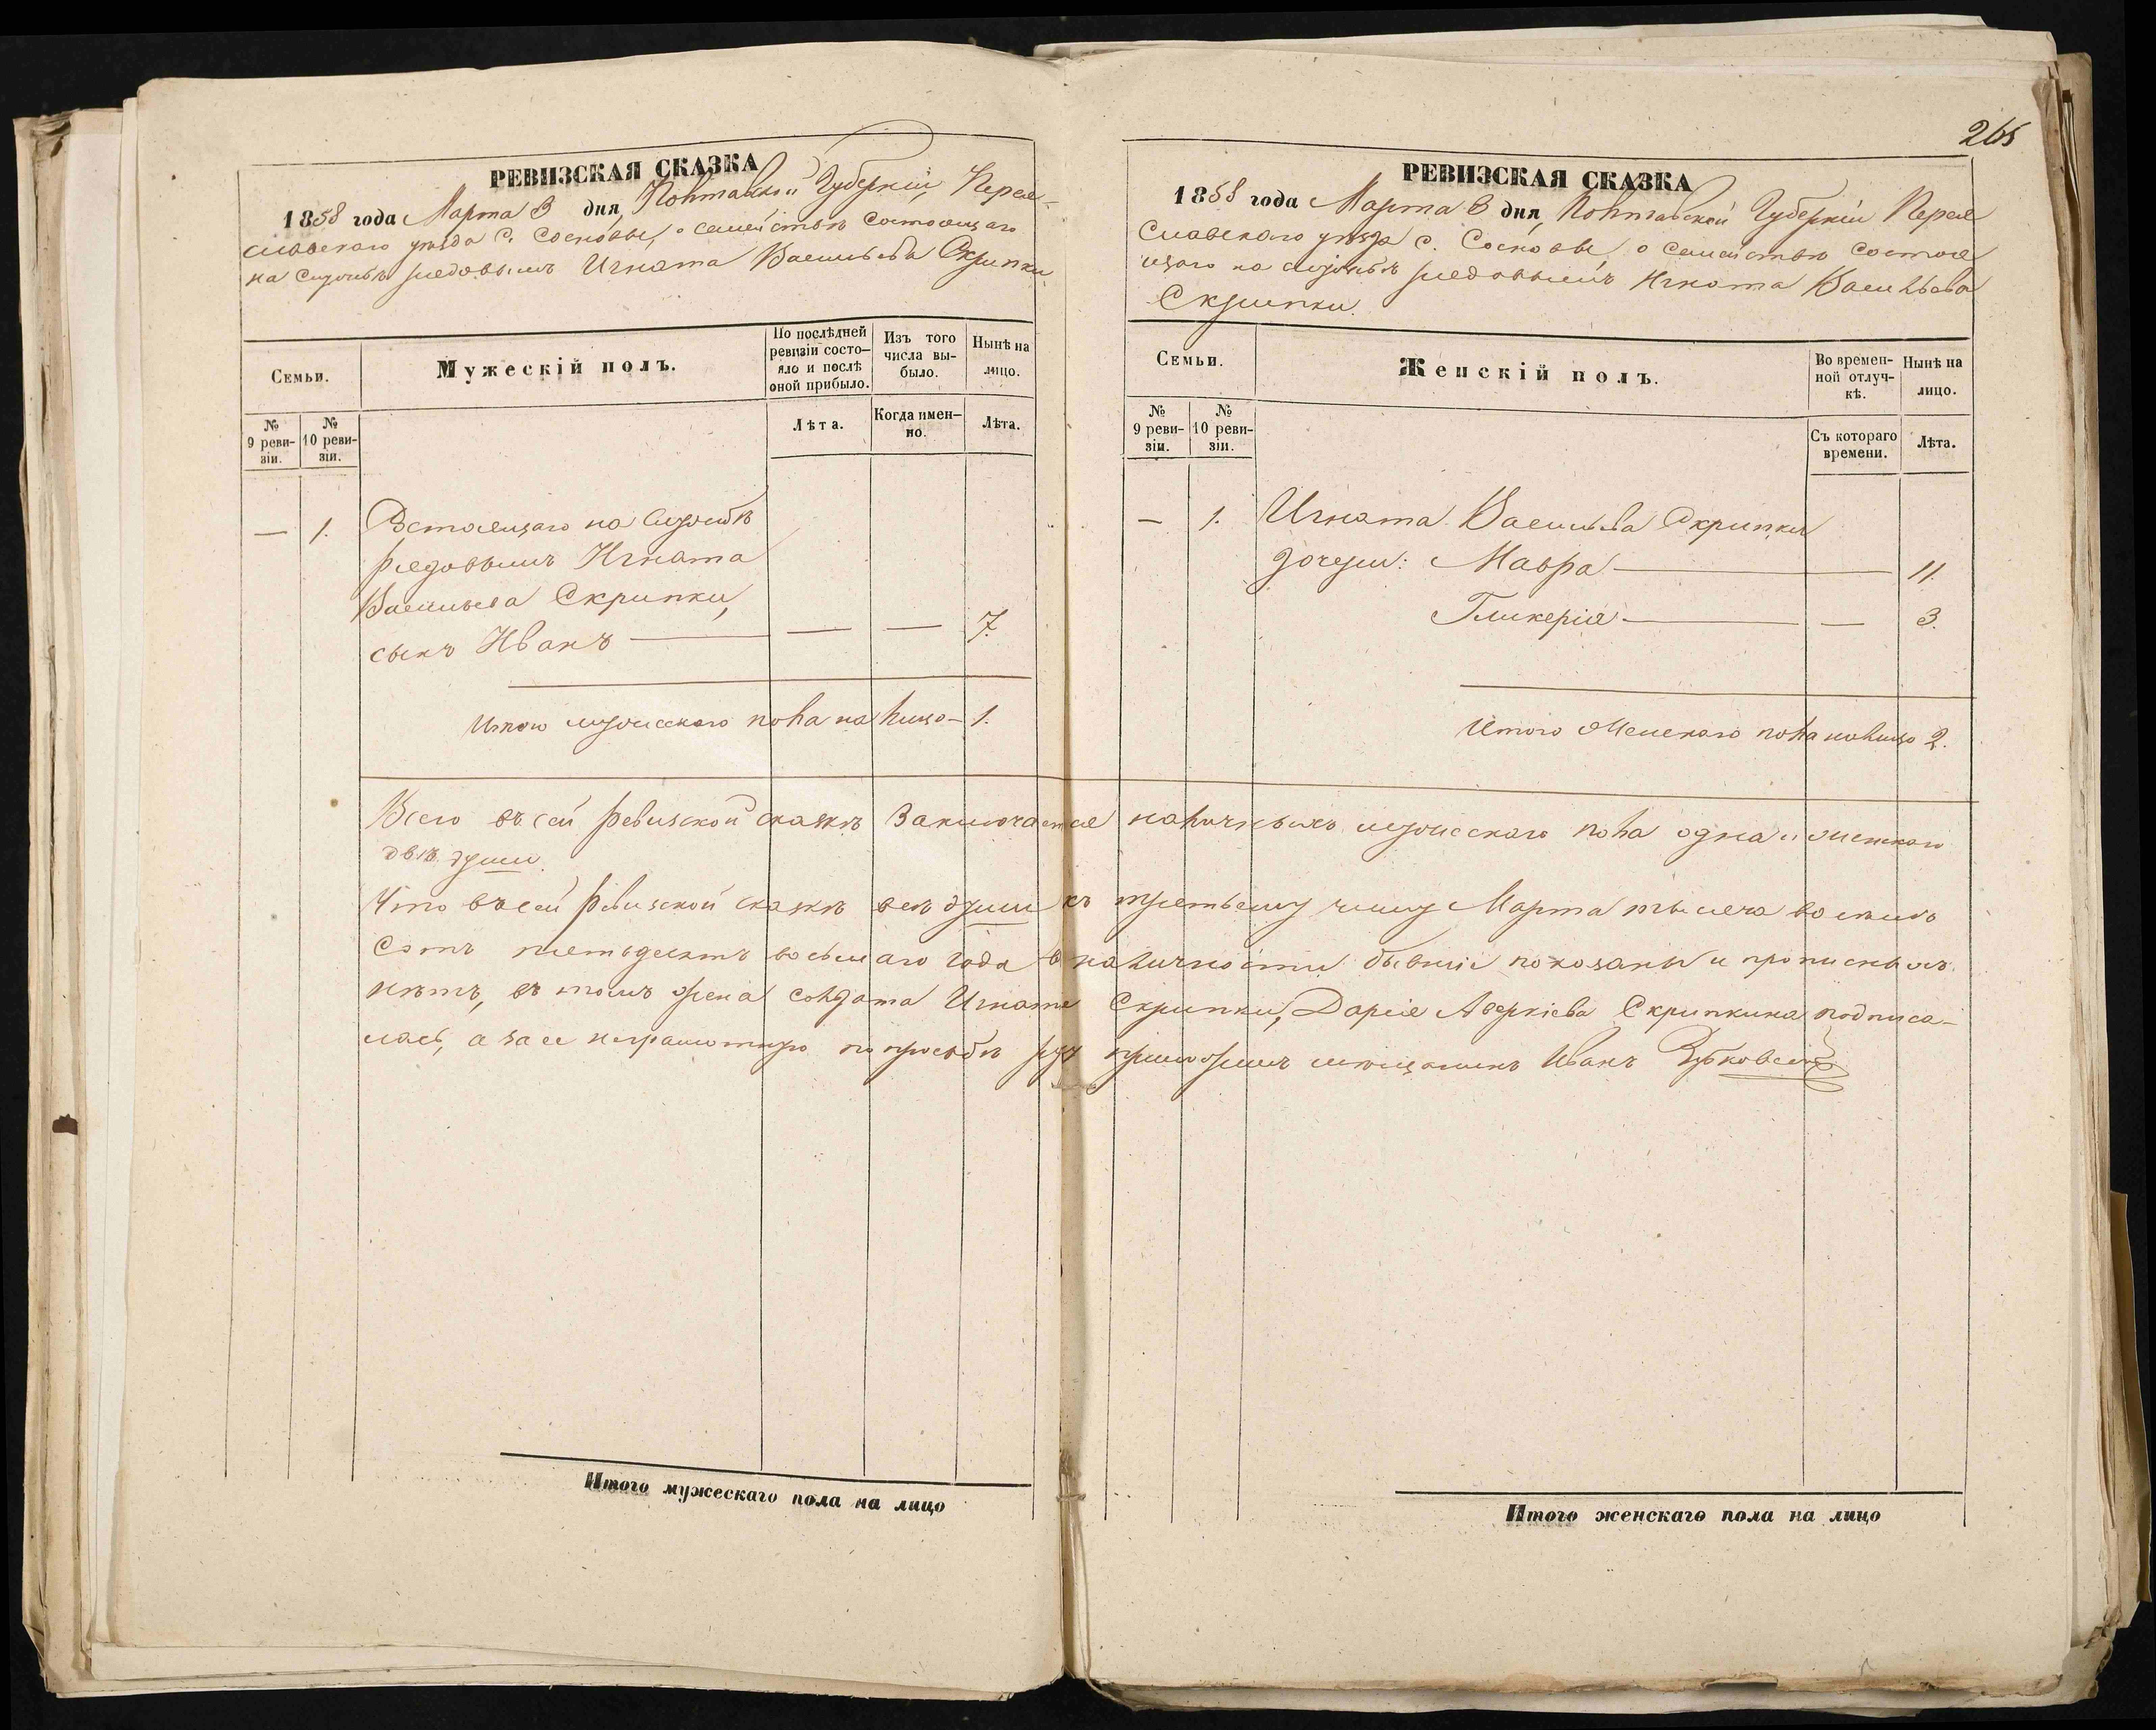 РЕВИЗСКАЯ СКАЗКА
1858 года Марта 3 дня, Полтавской Губерніи, Перея-
славскаго уѣзда С. Сосновы, о семействѣ состоящаго
на службѣ рядовымъ Игната Васильева Скрипки.
Семьи.
Мужескій полъ.
По послѣдней
ревизіи состо-
яло и послѣ
оной прибыло.
Изъ того
числа вы-
было.
Нынѣ на
лицо.
№
9 реви-
зіи.
№
10 реви-
зіи.
Лѣта.
Когда имен-
но.
Лѣта.
— 1. Состоящаго на Службѣ
рядовымъ Игната
Васильева Скрипки,
сынъ Иванъ — — — 7.
Итого мужескаго пола на лицо — 1.
265
РЕВИЗСКАЯ СКАЗКА
1858 года Марта 3 дня, Полтавской Губерніи Перея
Славскаго уѣзда с. Сосновы, о Семействѣ состоя
щаго на службѣ рядовымъ Игната Васильева
Скрипки.
Семьи.
Женскій полъ.
Во времен-
ной отлуч-
кѣ.
Нынѣ на
лицо.
№
9 реви-
зіи.
№
10 реви-
зіи.
Съ котораго
времени.
Лѣта.
— 1. Игната Васильева Скрипки
дочери: Мавра — — 11.
Гликерія — — 3.
Итого Женскаго пола налицо 2.
Всего въ сей ревизской сказкѣ Заключается наличныхъ мужескаго пола одна и женскаго
двѣ души.
Что въ сей ревизской сказкѣ всѣ души къ третьему числу Марта тысяча восемь
Сотъ пятьдесятъ восьмаго года в наличности бывшіе показаны и прописныхъ
нѣтъ, въ томъ жена солдата Игната Скрипки, Дарія Аверкіева Скрипкина подписа-
лась, а за ее неграмотную по просьбѣ руку приложилъ мѣщанинъ Иванъ
Итого мужескаго пола на лицо
Итого женскаго пола на лицо